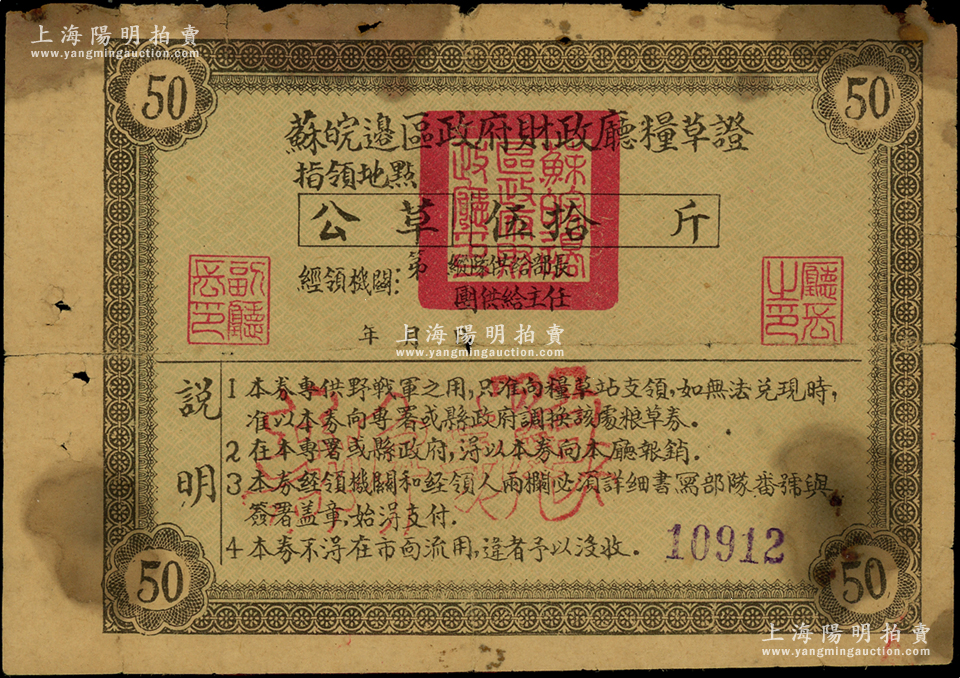 上海陽明拍賣
www.yangmingauction.com
上海陽明拍賣
www.yangmingauction.com
50
50
蘇皖邊區政府財政廳糧草證
指領地點
公草伍拾斤
經領機關:
第 縱隊供給部長
團供給主任
副廳長印
廳長之印
年 月 日
上海陽明拍賣
www.yangmingauction.com
説明
1 本券專供野戰軍之用,只准向糧草站支領,如無法兑現時,
准以本券向專署或縣政府調换該處粮草券。
2 在本專署或縣政府,淂以本券向本廳報銷。
3 本券经領機關和经領人兩欄必湏詳细書寫部隊番號與
簽署盖章,始淂支付.
4 本券不淂在市面流用,違者予以没收。
10912
50
50
上海陽明拍賣
www.yangmingauction.com